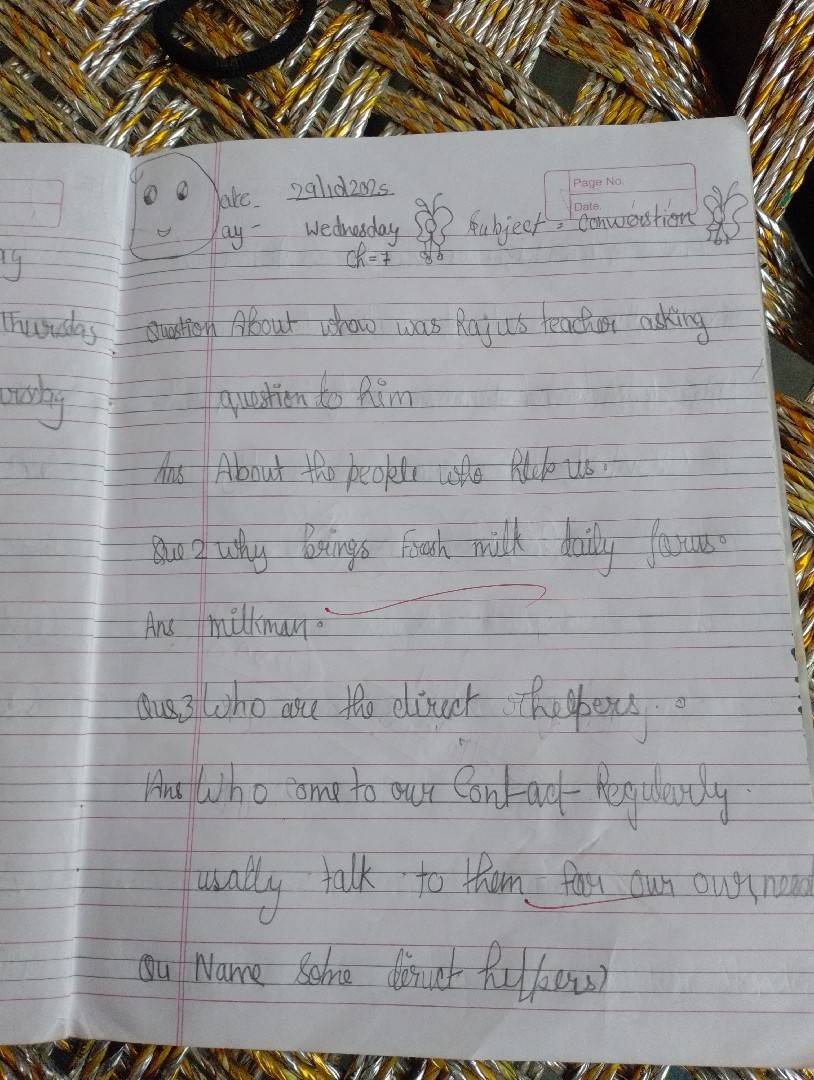 Page No.
Date.
ate- 29/10/2025
ay- Wednesday Subject = Conwerstion
ch=7
ay
Thursday
ursday
Question About whow was Rajus teacher asking
question to him
Ans About the people who hlep us.
Que 2 why brings Fresh milk daily
Ans milkman.
Que,3 Who are the direct helpers.
Ans Who come to our Contact Regularly
usally talk to them for our own, need
Qu Name some diruct helpers?